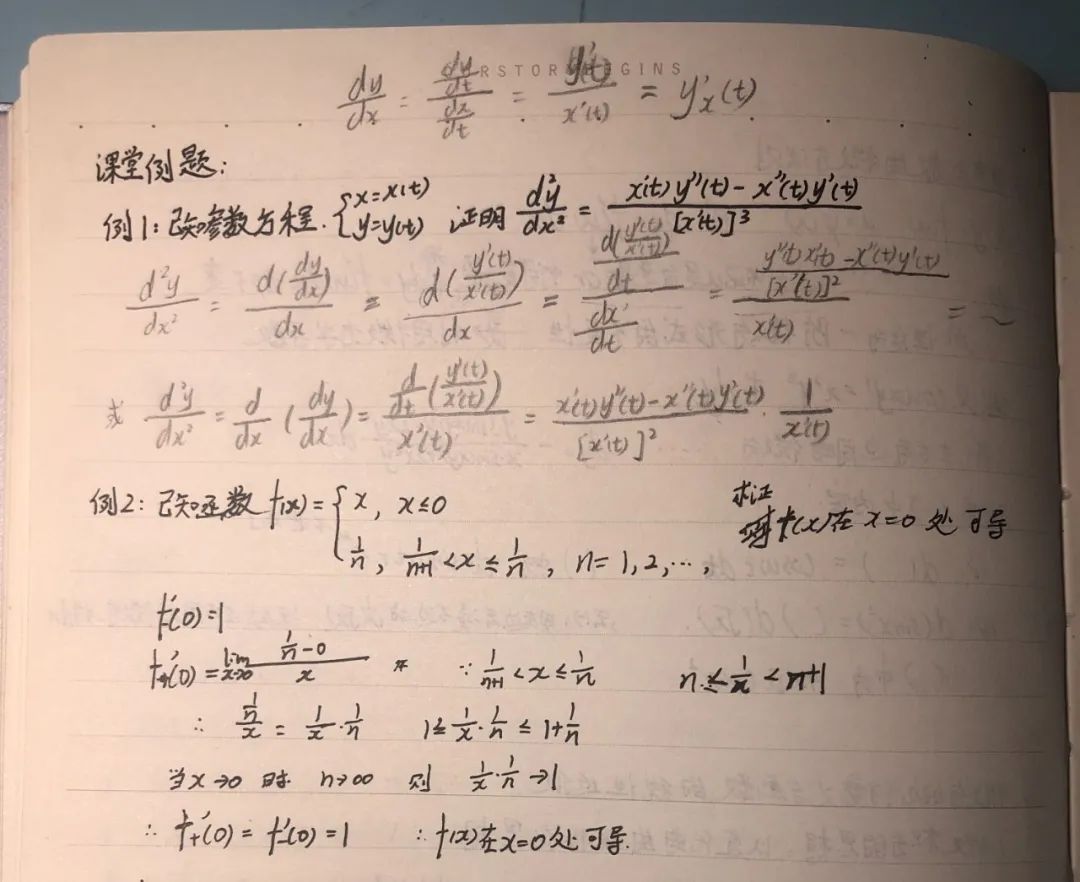 RSTOR GINS
dy/dx = (dy/dt)/(dx/dt) = y'(t)/x'(t) = y'ₓ(t)
课堂例题:
例1: 已知参数方程. {x=x(t) y=y(t) 证明 d²y/dx² = (x'(t)y''(t) - x''(t)y'(t))/[x'(t)]³
d²y/dx² = d(dy/dx)/dx = d(y'(t)/x'(t))/dx = (d(y'(t)/x'(t))/dt)/(dx/dt) = ((y''(t)x'(t) - x''(t)y'(t))/[x'(t)]²)/x'(t) = ~
或 d²y/dx² = d/dx (dy/dx) = (d/dt (y'(t)/x'(t)))/x'(t) = (x'(t)y''(t) - x''(t)y'(t))/[x'(t)]² · 1/x'(t)
例2: 已知函数 f(x) = {x, x≤0
求证
f(x)在 x=0 处可导
1/n, 1/(n+1) < x ≤ 1/n, n=1,2,…,
f'₋(0)=1
f'₊(0) = lim x→0 (1/n - 0)/x ∵ 1/(n+1) < x ≤ 1/n n ≤ 1/x < n+1
∴ (1/n)/x = 1/x · 1/n 1 ≤ 1/x · 1/n ≤ 1+1/n
当 x→0 时 n→∞ 则 1/x · 1/n →1
∴ f'₊(0) = f'₋(0) = 1 ∴ f(x)在x=0处可导.